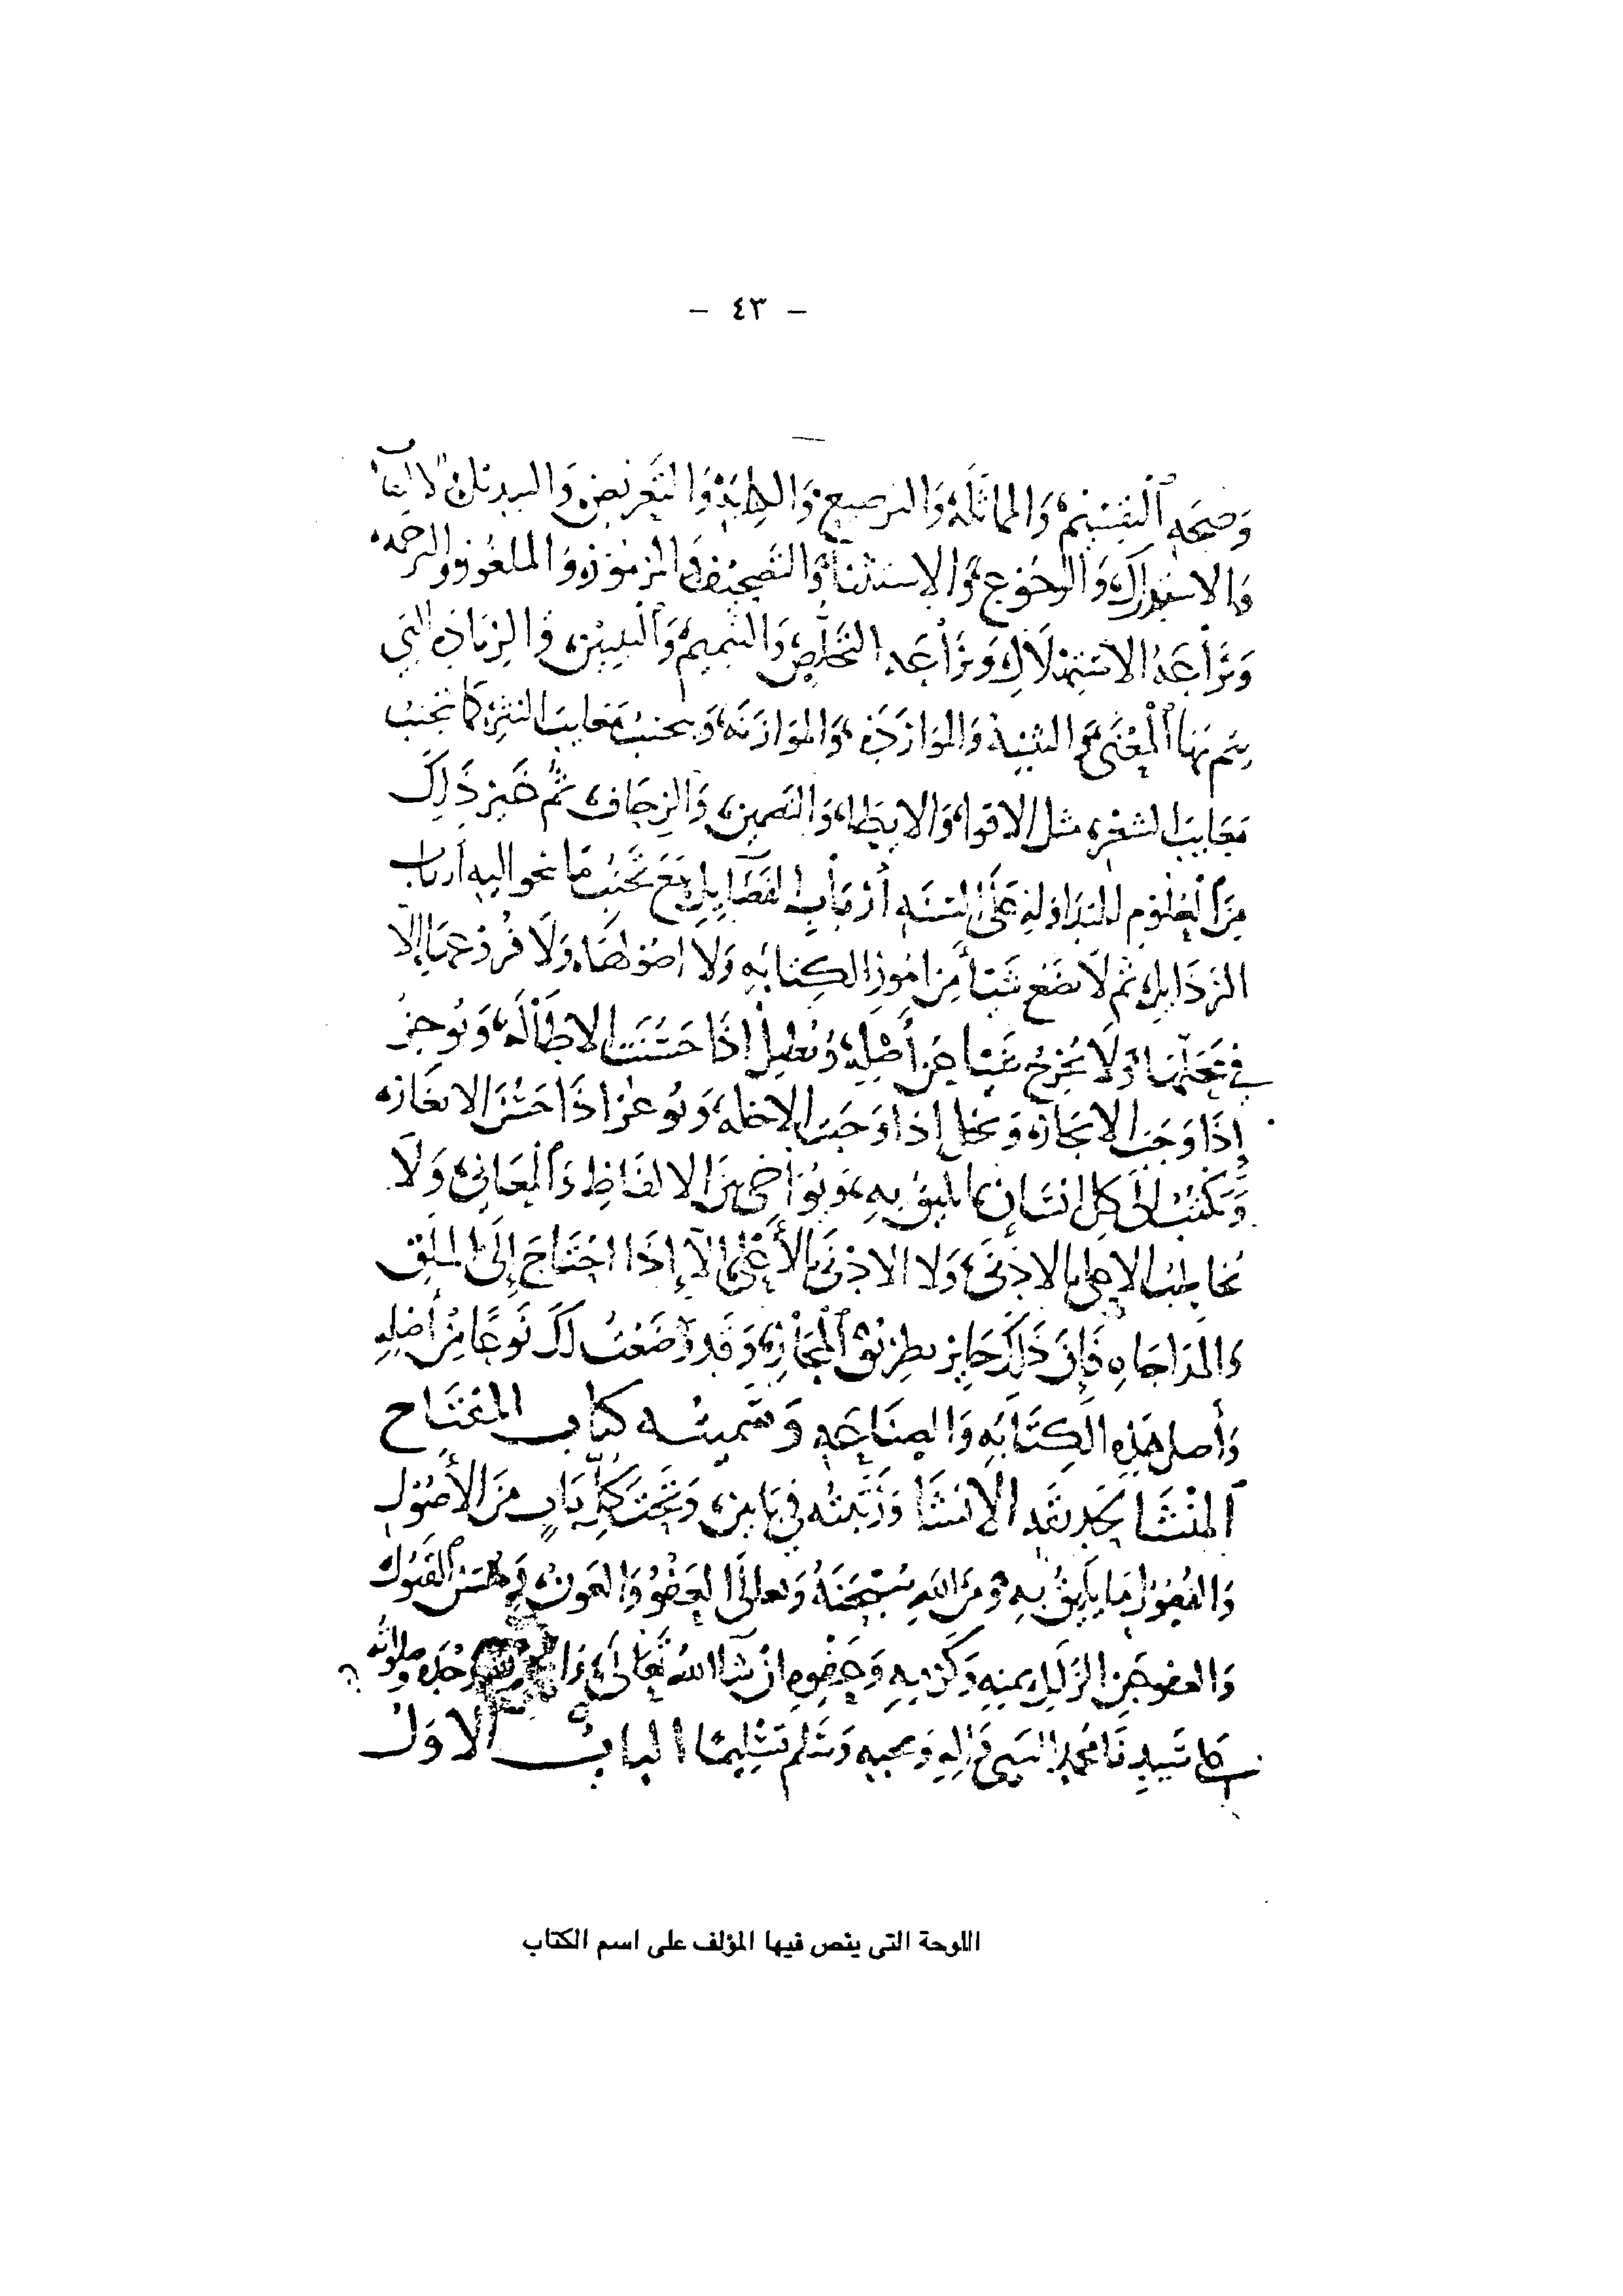 - ٤٣ -
وَصحَه اَلتقسِيْم وَالمماثَلَة وَالترصيع وَالكِنَايَة وَالتَّعريض وَالتبديل
وَالاستدراك وَالرجُوْع وَالاستثنا وَالتَّصحِيف وَالمرموز وَالملغوز والترجمه
وَبَرَاعَة الاستِهْلَال وَبَرَاعَه التَّخلُّص وَالتتميم وَالتبيين وَالزيَادَه التِي
يتم بهَا اَلْمَعْنَى وَالتثنِيَة وَالموَازَرَة وَالموَازَنَه وَتجنبُ مَعَايبَ النثر كمَا تجنبُ
مَعَايبَ الشعْر مثل الاقوا وَالايطا وَالتضمين وَالزحَاف ثُمَّ خَبَر ذَلِكَ
مِنَ اَلعُلُوْم المتدَاولة عَلَى السنَه أرْبَابِ الفضَايِل مَعَ تَجَنُبِ مَا نحوا اليه أرباب
الرذَايل ثُم لَا تضَع شَيئاً مِن امُورِ الكِتابَهِ وَلا اصُوْلهَا وَلَا فُروعهَا إلا
في محَلهَا وَلَا تُخرِجُ شيْئا عَن أَصْلِهِ وَتُطيلُ إذَا حَسُنَت الاطَالَه وَتُوجزُ
إِذَا وَجَبَ الايجَاز وَتخل إذا وَجَبَ الاخلال وَتُوعز اذَا حَسُنَ الايعَاز
وَتَكتبُ إلَى كل انسَانٍ مَا يليقُ بِه وَتوَاخِي بَيَن الالفَاظِ وَاَلْمعَانِي وَلَا
تخَاطِبُ الاعلى بالادْنَى وَلا الادْنَى بِالأَعْلَى إلا إِذَا احتَاجَ إِلَى المَلَق
وَالمدَاجَاهِ فَإِنَ ذَلِكَ جَايز بطرِيْق اَلْمجَازِ وَقَد وَضَعْتُ لَكَ نَوعًا مِنْ أصْلِهِ
وَأصل هَذِهِ الكِتَابَهِ وَالصِنَاعَهِ وَسَميتُه كتَاب المفتَاح
اَلمنْشَا بحَديقَه الانشَا وَرَتبتُه فِي بَابين وَتحْتَ كُلّ بَابٍ مِنَ الأصُول
وَالفُصُوْل مَا يليْقُ بِهِ وَمِنَ اللهِ سُبْحَنَهُ وَتعالَى العفْو وَالعون في حُسن القَبُول
وَالعفو عَنِ الزلَل بمنِه وَكَرَمِهِ وَعَفْوِهِ ان شَآ اللهُ تَعَالَى وَحْدَه وصلواته
عَلى سَيدِنَا مُحَمد النبي وَآلهِ وَصحبِه وَسَلم تَسْلِيمًا البَابُ الاوَلُ
اللوحة التى ينص فيها المؤلف على اسم الكتاب